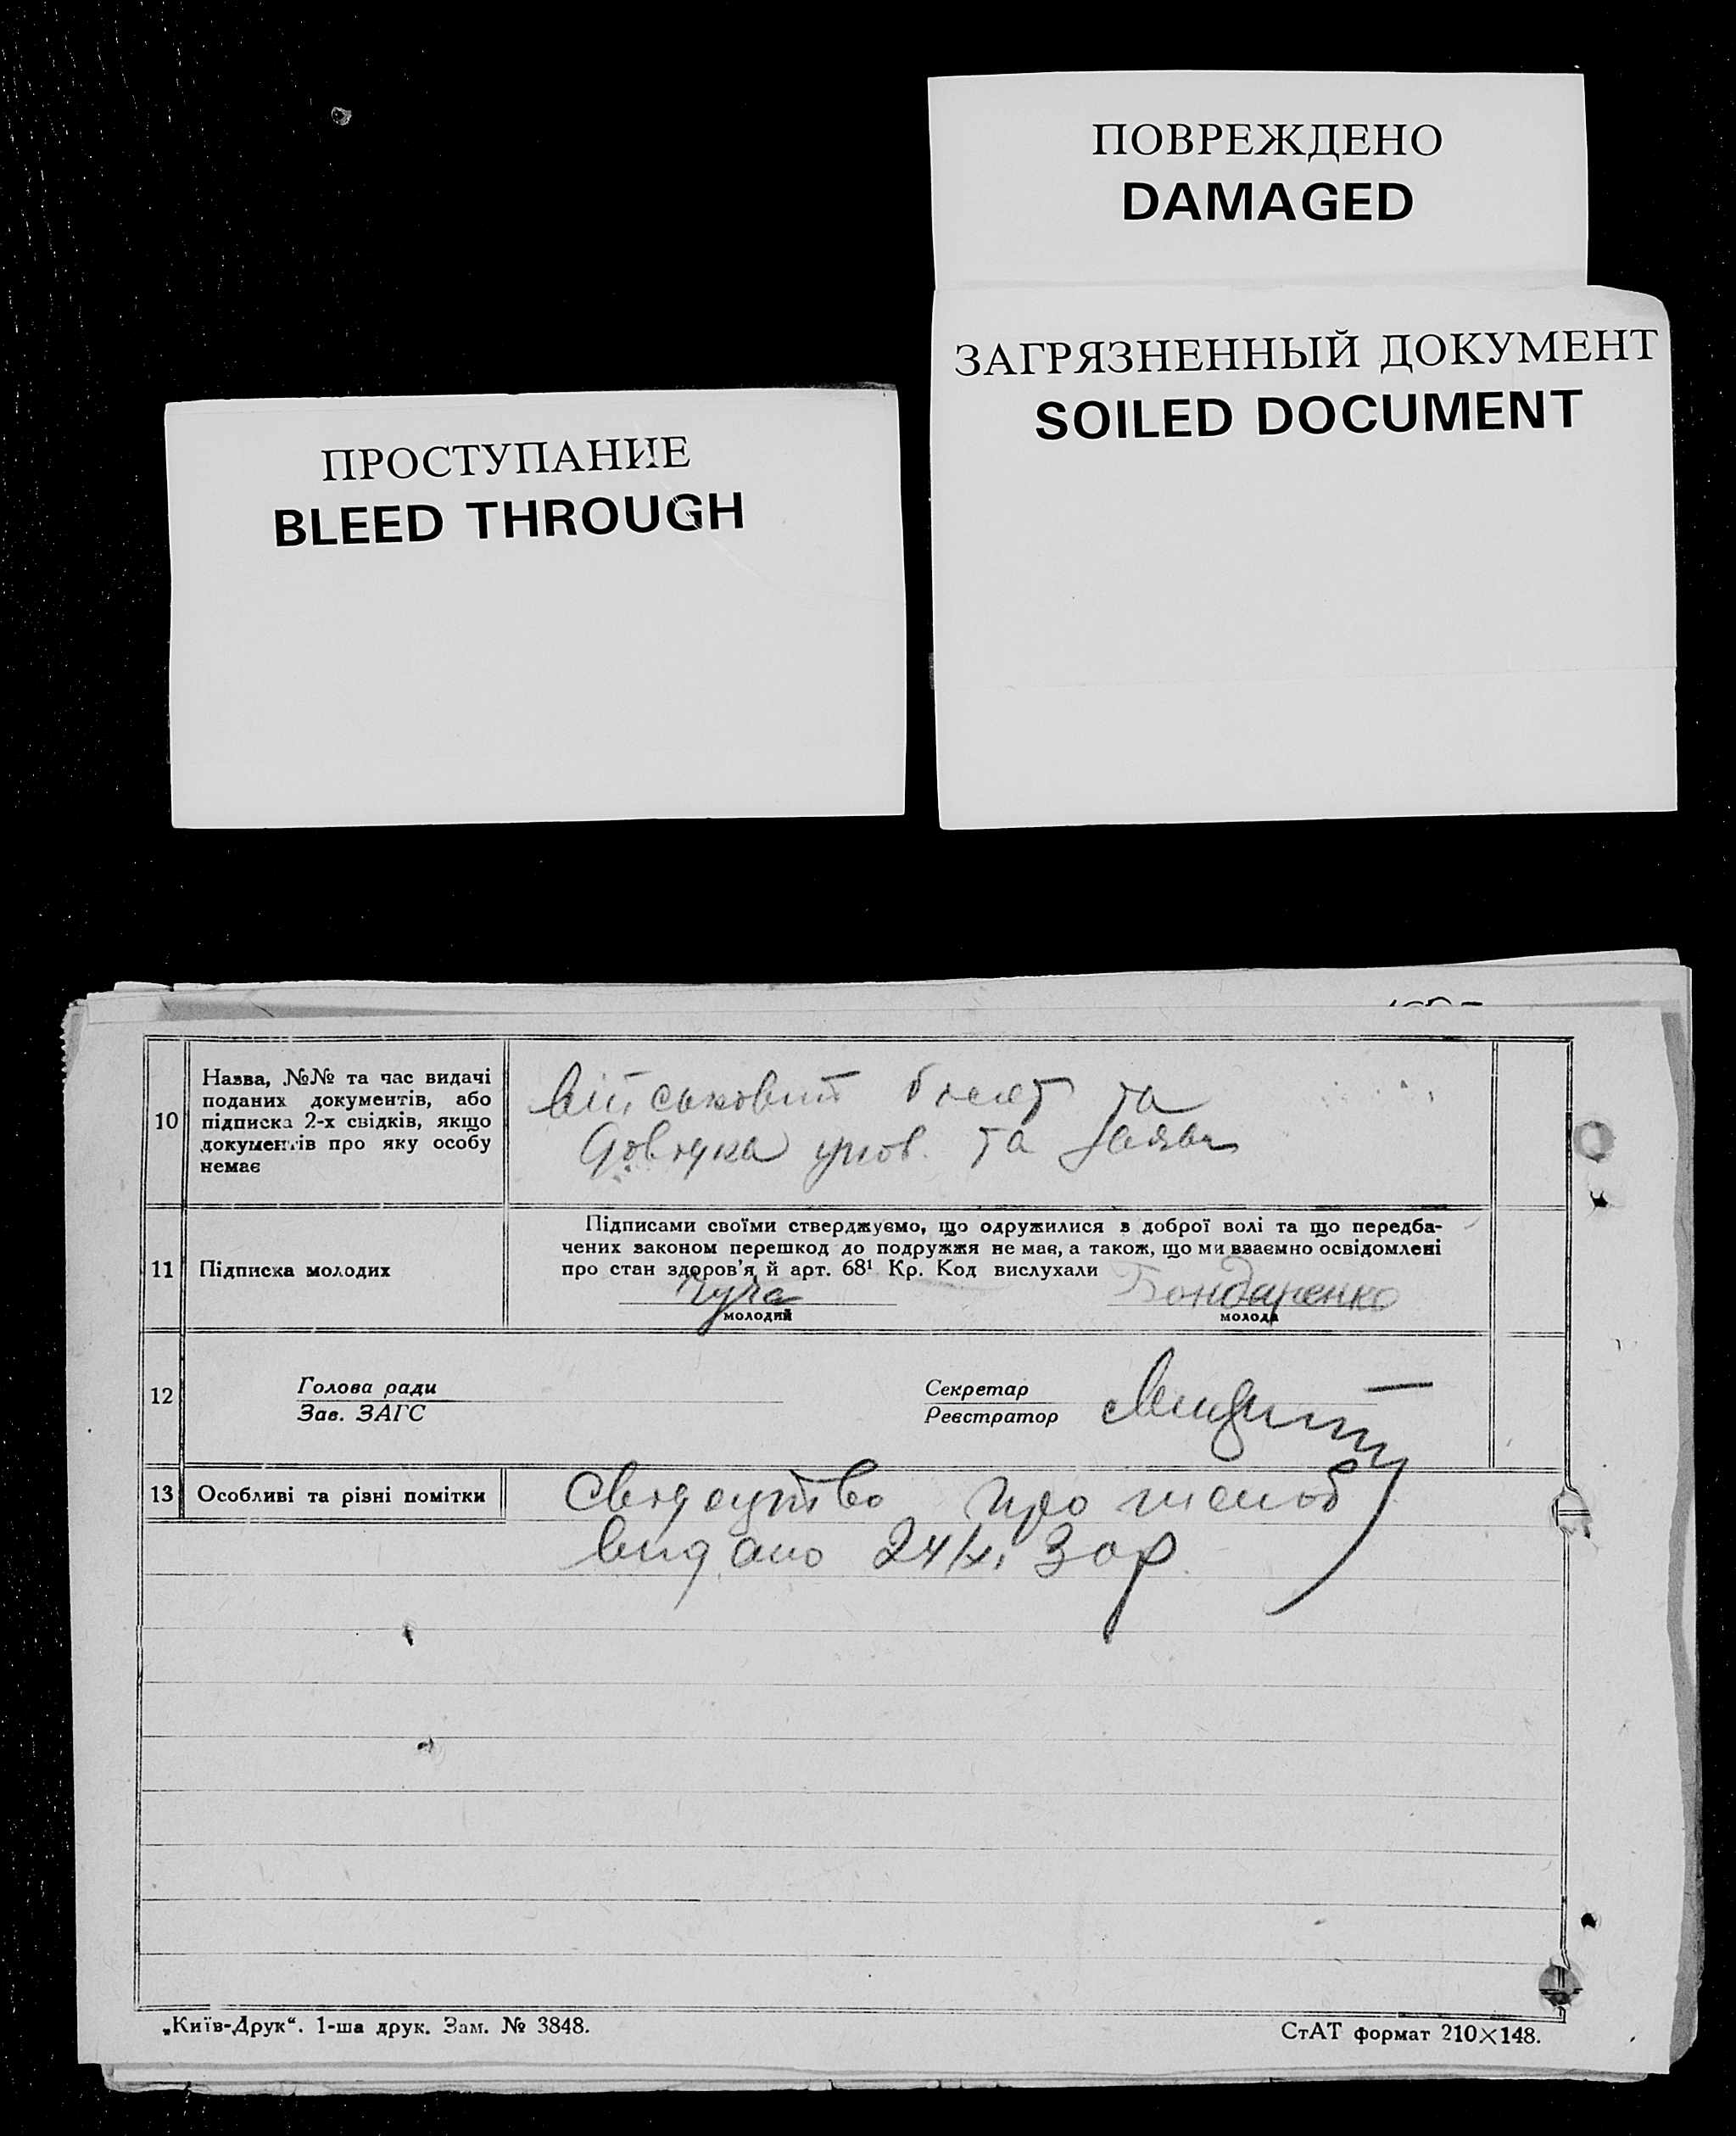 ПОВРЕЖДЕНО
DAMAGED
ЗАГРЯЗНЕННЫЙ ДОКУМЕНТ
SOILED DOCUMENT
ПРОСТУПАНИЕ
BLEED THROUGH
10
Назва, №№ та час видачі
поданих документів, або
підписка 2-х свідків, якщо
документів про яку особу
немає
військовий білет та
довідка та заяви
11
Підписка молодих
Підписами своїми стверджуємо, що одружилися з доброї волі та що передба-
чених законом перешкод до подружжя не має, а також, що ми взаємно освідомлені
про стан здоров'я й арт. 68¹ Кр. Код вислухали
Бондаренко
молодий
молода
12
Голова ради
Зав. ЗАГС
Секретар
Реєстратор
13
Особливі та різні помітки
Свідоцтво про шлюб
видано 24/XI 30р.
„Київ-Друк“. 1-ша друк. Зам. № 3848.
СтАТ формат 210×148.